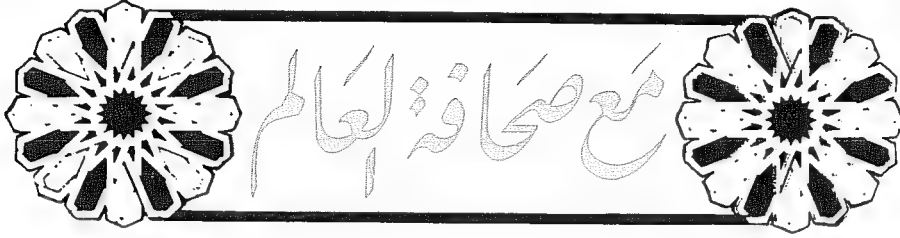 مع صحافة العالم